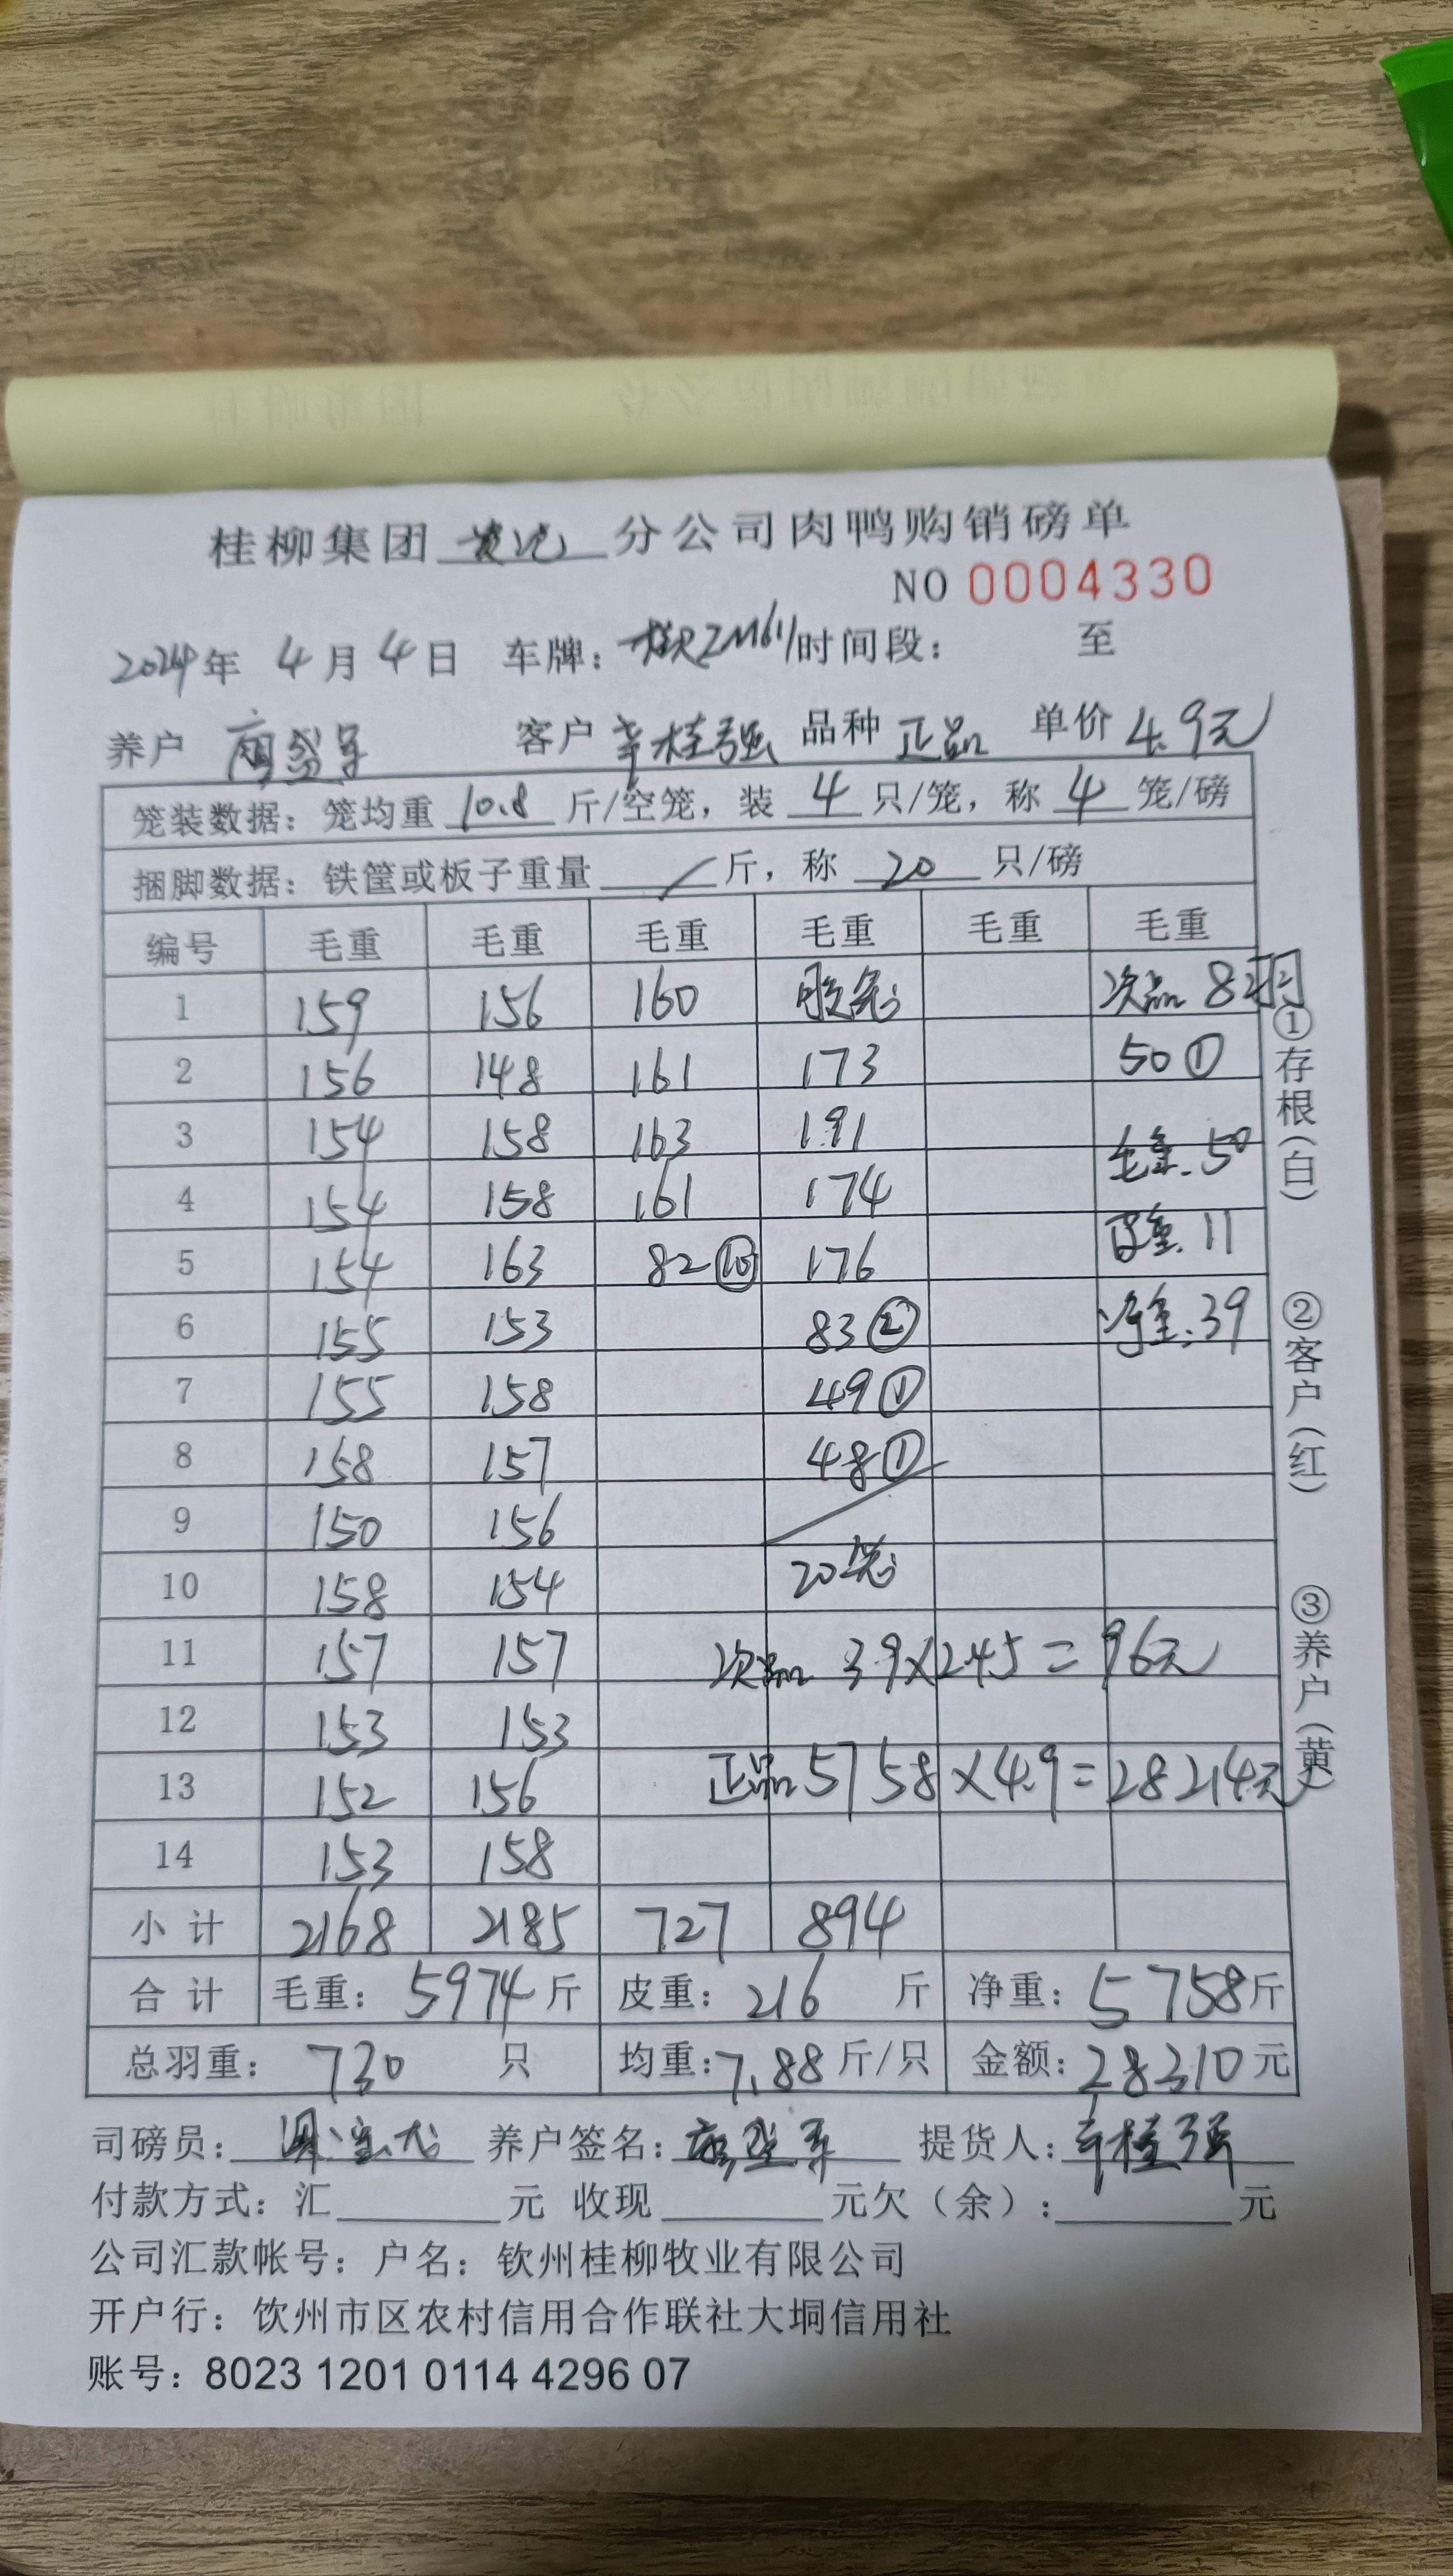 桂柳集团 分公司肉鸭购销磅单
NO 0004330
2024年 4月4日 车牌： 时间段： 至
养户 客户 辛桂强 品种 正品 单价 4.9元
笼装数据：笼均重 10.8 斤/空笼，装 4 只/笼，称 4 笼/磅
捆脚数据：铁筐或板子重量 / 斤，称 20 只/磅
编号 毛重 毛重 毛重 毛重 毛重 毛重
1 159 156 160 胶笼 次品 8羽
2 156 148 161 173 50①
3 154 158 163 191 毛重.50
4 154 158 161 174 皮重.11
5 154 163 82⑩ 176 净重.39
6 155 153 83②
7 155 158 49①
8 158 157 48①
9 150 156
10 158 154 20笼
11 157 157 次品 39×2.45=96元
12 153 153
13 152 156 正品 5758×4.9=28214元
14 153 158
小计 2168 2185 727 894
合计 毛重：5974斤 皮重：216 斤 净重：5758斤
总羽重：730 只 均重：7.88斤/只 金额：28310元
司磅员： 养户签名： 提货人：辛桂强
付款方式：汇 元 收现 元欠（余）： 元
公司汇款帐号：户名：钦州桂柳牧业有限公司
开户行：饮州市区农村信用合作联社大垌信用社
账号：8023 1201 0114 4296 07
①存根（白）
②客户（红）
③养户（黄）